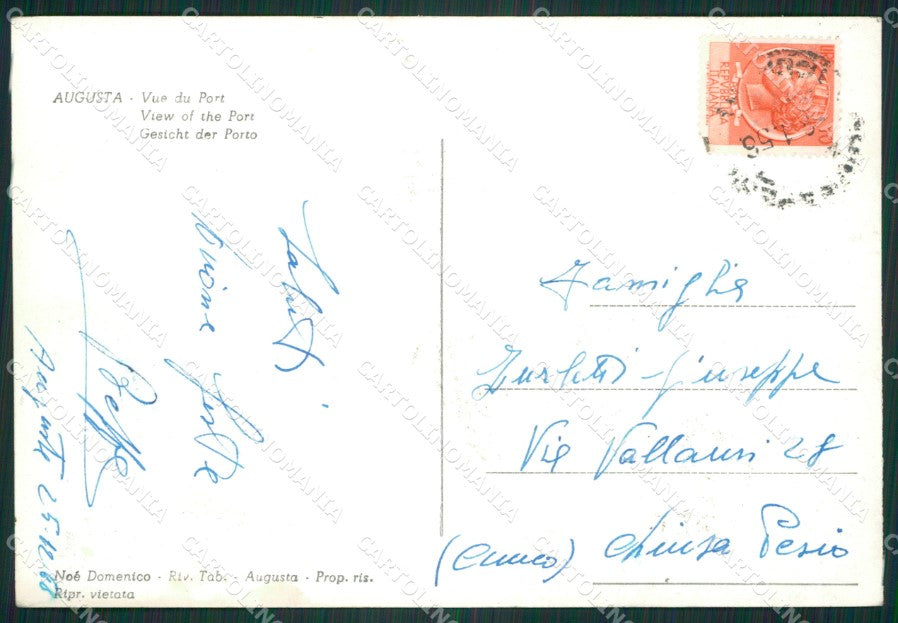 AUGUSTA - Vue du Port
View of the Port
Gesicht der Porto
REPUBBLICA
ITALIANA
Saluti
buone feste
Beppe
Augusta 25.12.
Famiglia
Giuseppe
Via Vallauri 28
(Cuneo) Chiusa Pesio
Noé Domenico - Riv. Tab. - Augusta - Prop. ris.
Ripr. vietata
CARTOLINOMANIA